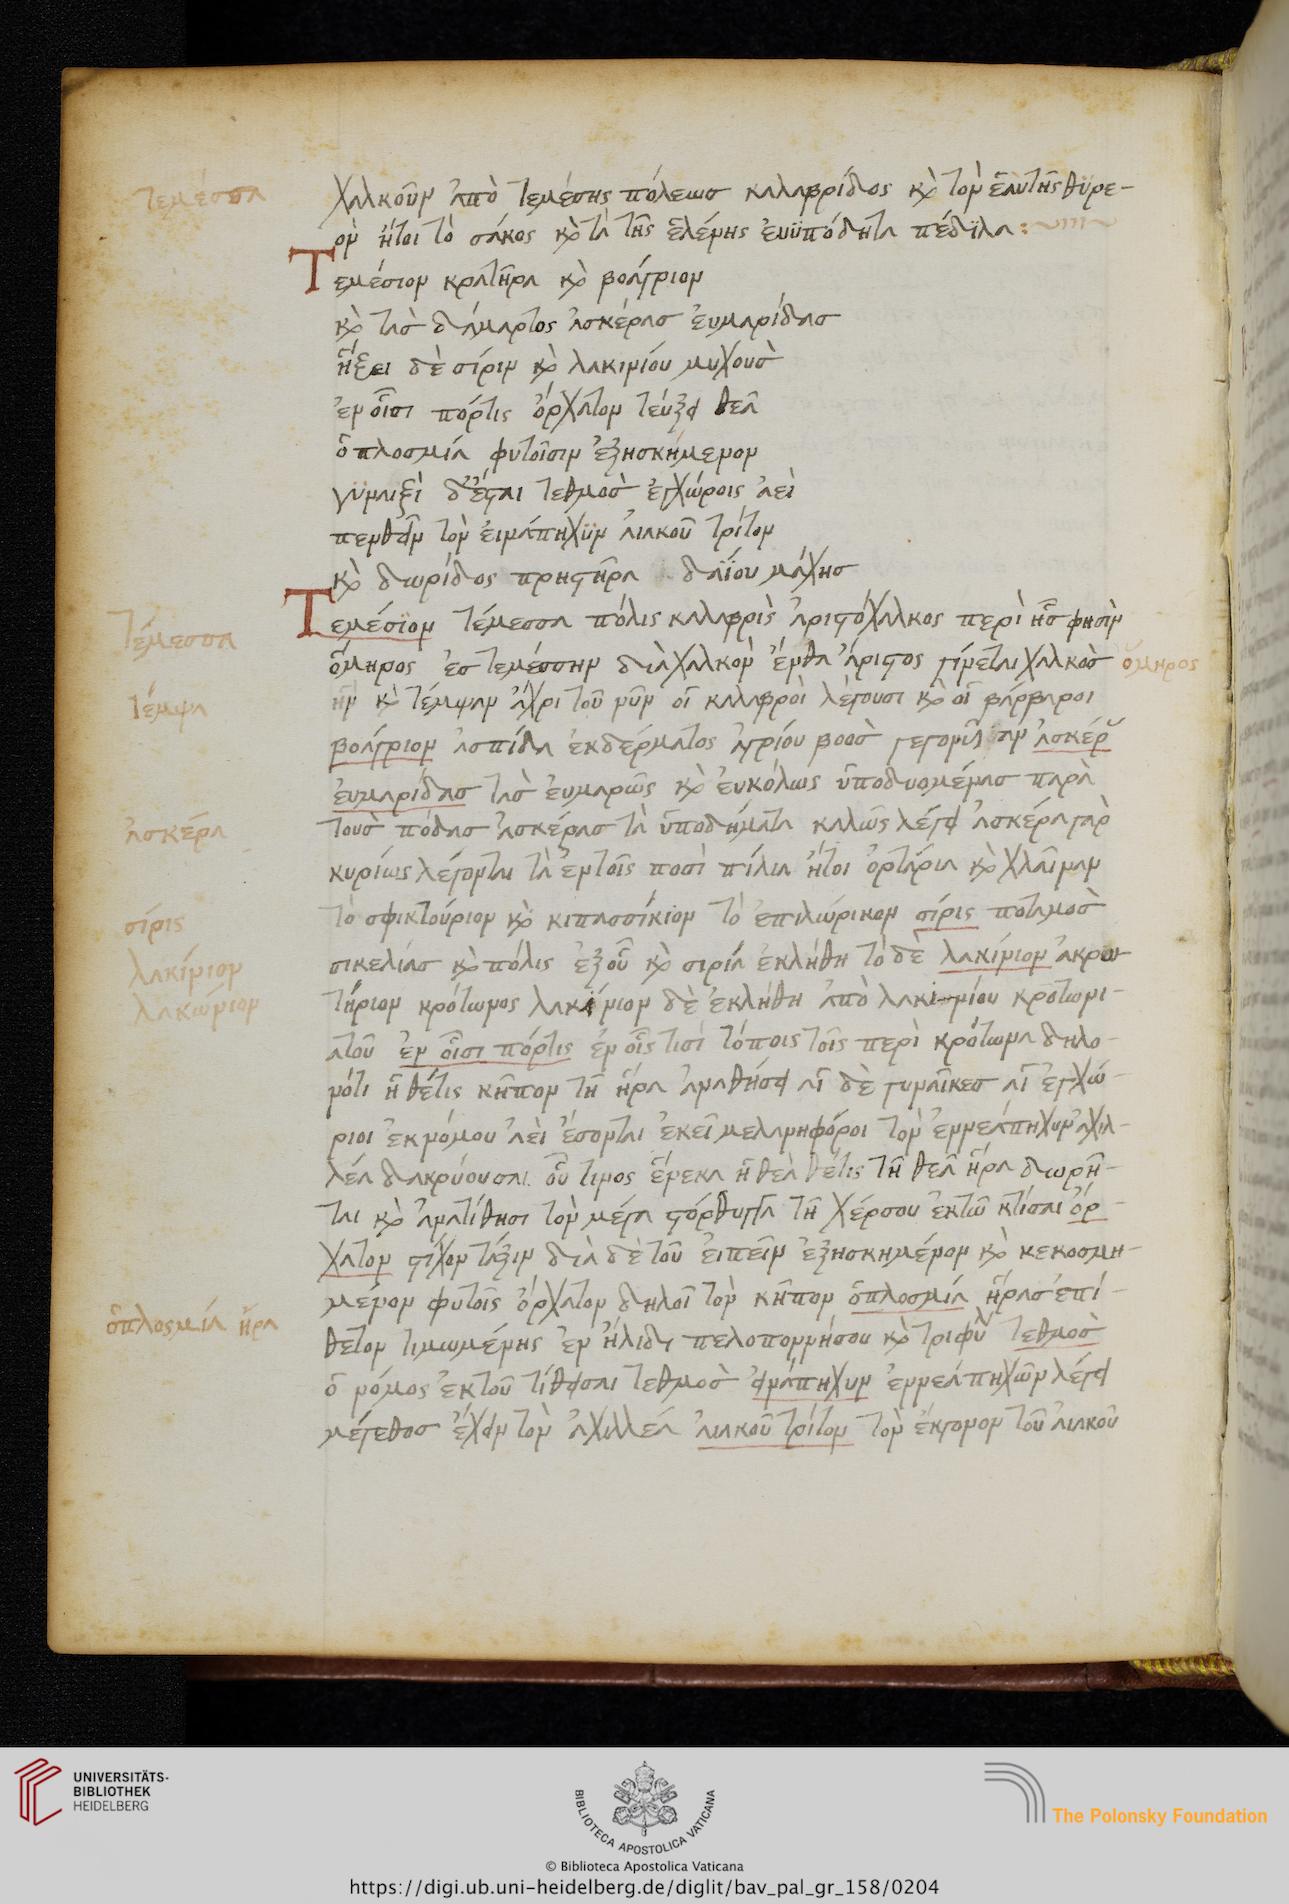 τεμέσσα
χαλκοῦν ἀπὸ τεμέσης πόλεωσ καλαβρίδος κỳ τὸν ἑαυτῆς θϋρε-
ὸν ἤτοι τὸ σάκος κỳ τὰ τῆς ἑλένης ἐυϋπόδητα πέδϊλα:
Τεμέσιον κρατῆρα κỳ βοάγριον
κỳ τὰσ δάμαρτος ἀσκέρασ ἐυμαρίδασ
ἥξει δὲ σίριν κỳ λακινίου μυχοὺσ
ἐν οἷσι πόρτις ὄρχατον τεύξει θεᾶ
ὁπλοσμία φυτοῖσιν ἐξησκημενον
γϋναιξὶ δ' ἔσται τεθμὸσ ἐγχώροις ἀεὶ
πενθεῖν τὸν εἰνάπηχϋν αἰακοῦ τρίτον
κỳ δωρίδος πρηστῆρα δαΐου μάχησ
Τεμέσϊον τέμεσσα πόλις καλαβρὶς ἀριστόχαλκος περὶ ἧς φησὶν
ὅμηρος ἐσ τεμέσσην διὰ χαλκὸν ἔνθα ἄριστος γίνεται χαλκὸσ
ὅμηρος
τέμεσσα
ἣν κỳ τέμψαν ἄχρι τοῦ νῦν οἱ καλαβροὶ λέγουσι κỳ οἱ βάρβαροι
τέμψα
βοάγριον ἀσπίδα ἐκ δέρματος ἀγρίου βοὸσ γεγονυῖαν ἀσκέρ
ἐυμαρίδασ τὰσ ἐυμαρῶς κỳ ἐυκόλως ὑποδυομένασ παρὰ
τοὺσ πόδασ ἀσκέρασ τὰ ὑποδήματα καλῶς λέγει ἀσκέρα γὰρ
ἀσκέρα
κυρίως λέγονται τὰ ἐν τοῖς ποσὶ πίλια ἤτοι ὀρτάρια κỳ χλαῖναν
τὸ σφικτούριον κỳ κιπασσίκιον τὸ ἐπιλώρικον σίρις ποταμὸσ
σίρις
σικελίασ κỳ πόλις ἐξ οὗ κỳ σιρία ἐκλήθη τὸ δὲ λακίνιον ἀκρω-
λακίνιον
τήριον κρότωνος λακϊνιον δὲ ἐκλήθη ἀπὸ λακι-νίου κροτωνι-
λακώνιον
ατοῦ ἐν οἷσι πόρτις ἐν οἷς τισὶ τόποις τοῖς περὶ κρότωνα δηλο-
νότι ἡ θέτις κῆπον τῆ ἥρα ἀναθήσει αἱ δὲ γυναῖκεσ αἱ ἐγχώ-
ριοι ἐκ νόμου ἀεὶ ἔσονται ἐκεῖ μελανηφόροι τὸν ἐννεάπηχυν ἀχιλ-
λέα δακρύουσαι. οὗ τινος ἕνεκα ἡ θεὰ θέτις τῆ θεᾶ ἥρα δωρῆ-
ται κỳ ἀνατίθησι τὸν μέγα στόρθυγγα τῆ χέρσου ἐκτῶ κτίσαι ὄρ-
χατον στίχον τάξιν διὰ δὲ τοῦ ἐιπεῖν ἐξησκημένον κỳ κεκοσμη-
μένον φυτοῖς ὄρχατον δηλοῖ τὸν κῆπον ὁπλοσμία ἥρασ ἐπί-
ὁπλοσμία ἥρα
θετον τιμωμένης ἐν ἤλιδι πελοποννήσου κỳ τριφυλ τεθμὸσ
ὁ νόμος ἐκ τοῦ τίθεισαι τεθμὸσ εἰνάπηχυν ἐννεάπηχῶν λέγει
μέγεθοσ ἔχειν τὸν ἀχιλλέα αἰακοῦ τρίτον τὸν ἔκγονον τοῦ αἰακοῦ
UNIVERSITÄTS-
BIBLIOTHEK
HEIDELBERG
BIBLIOTECA APOSTOLICA VATICANA
The Polonsky Foundation
© Biblioteca Apostolica Vaticana
https://digi.ub.uni-heidelberg.de/diglit/bav_pal_gr_158/0204